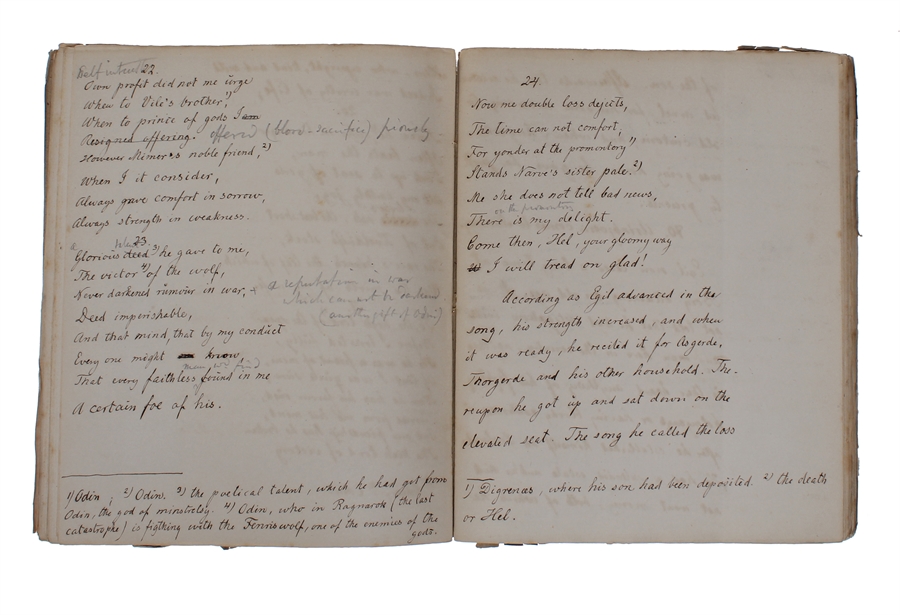 Self interest
22.
Own profit did not me ùrge
When to Vile's brother,1)
When to prince of gods I am
Resigned offering. offered (blood-sacrifice) piously
However Mimer's noble friend,2)
When I it consider,
Always gave comfort in sorrow,
Always strength in weakness.
23.
a talent
Glorious deed3) he gave to me,
The victor4) of the wolf,
Never darkened rùmour in war, a reputation in war
which can not be
Deed imperishable, (another gift of Odin)
And that mind, that by my conduct
Every one might know,
man, we find
That every faithless found in me
A certain foe of his.
1) Odin, 2) Odin. 3) the poetical talent, which he had got from
Odin, the god of minstrelsy. 4) Odin, who in Ragnarok (the last
catastrophe) is figthing with the Fenriswolf, one of the enemies of the
gods.
24.
Now me double loss dejects,
The time can not comfort,
For yonder at the promontory1)
Stands Narve's sister pale.2)
Me she does not tell bad news,
on the promontory
There is my delight.
Come then, Hel, your gloomy way
I will tread on glad!
According as Egil advanced in the
song, his strength increased, and when
it was ready, he recited it for Asgerde,
Thorgerde and his other household. The-
reupon he got ùp and sat down on the
elevated seat. The song he called the loss
1) Digrenæs, where his son had been deposited. 2) the death
or Hel.